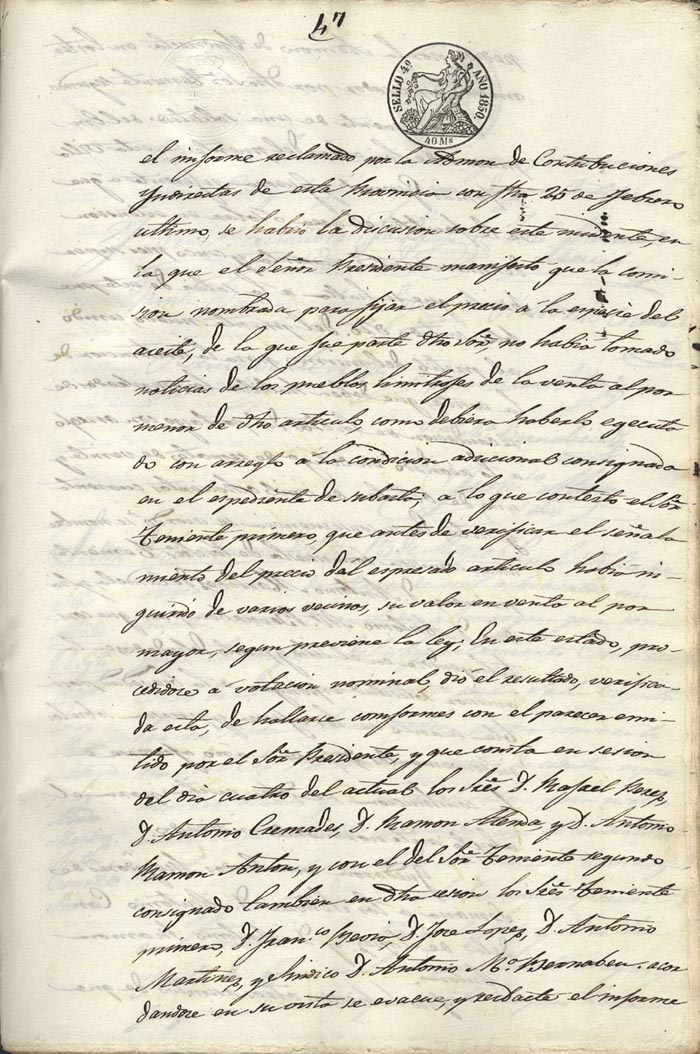 47
SELLO 4º AÑO 1850.
40 Ms
el informe reclamado por la Admon de Contribuciones
Yndirectas de esta Provincia con fha 25 de Febrero
ultimo, se habrio la discusion sobre este incidente, en
la que el Señor Presidente manifestó que la comi-
sion nombrada para fijar el precio á la especie del
aceite, de la que fue parte dho Sor, no habia tomado
noticias de los pueblos limitrofes de la venta al por
menor de dho articulo, como debiera haberlo egecuta
do con arreglo á la condicion adicional consignada
en el espediente de subasta; á lo que contestó el Sor
Teniente primero, que antes de verificar el señala
miento del precio del espresado articulo habia in-
quirido de varios vecinos, su valor en venta al por
mayor, segun previene la ley; En este estado, pro-
cedidose á votacion nominal, dió el resultado, verifica-
da esta, de hallarse comformes con el parecer emi-
tido por el Sor Presidente, y que consta en sesion
del dia cuatro del actual los Sres D. Rafael Perez,
D. Antonio Cremades, D. Ramon Alenda, y D. Antonio
Ramon Anton, y con el del Sor Teniente segundo
consignado tambien en dha sesion los Sres Teniente
primero, D. Franco D. Jose Lopez, D. Antonio
Martinez, y Sindico D. Antonio Ma Bernabeu. acor
dandose en su vista se evacue, y redacte el informe